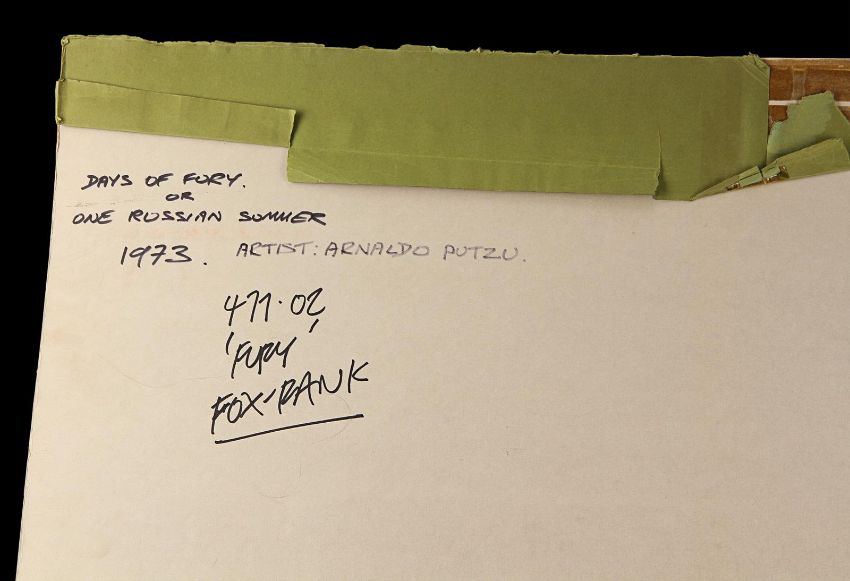 DAYS OF FURY.
OR
ONE RUSSIAN SUMMER
1973. ARTIST: ARNALDO PUTZU.
477·02
'FURY'
FOX-RANK